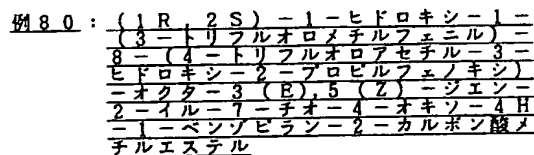 例80:(1R,2S)-1-ヒドロキシ-1-
(3-トリフルオロメチルフェニル)-
8-(4-トリフルオロアセチル-3-
ヒドロキシ-2-プロピルフェノキシ)
-オクタ-3(E),5(Z)-ジエン-
2-イル-7-チオ-4-オキソ-4H
-1-ベンゾピラン-2-カルボン酸メ
チルエステル